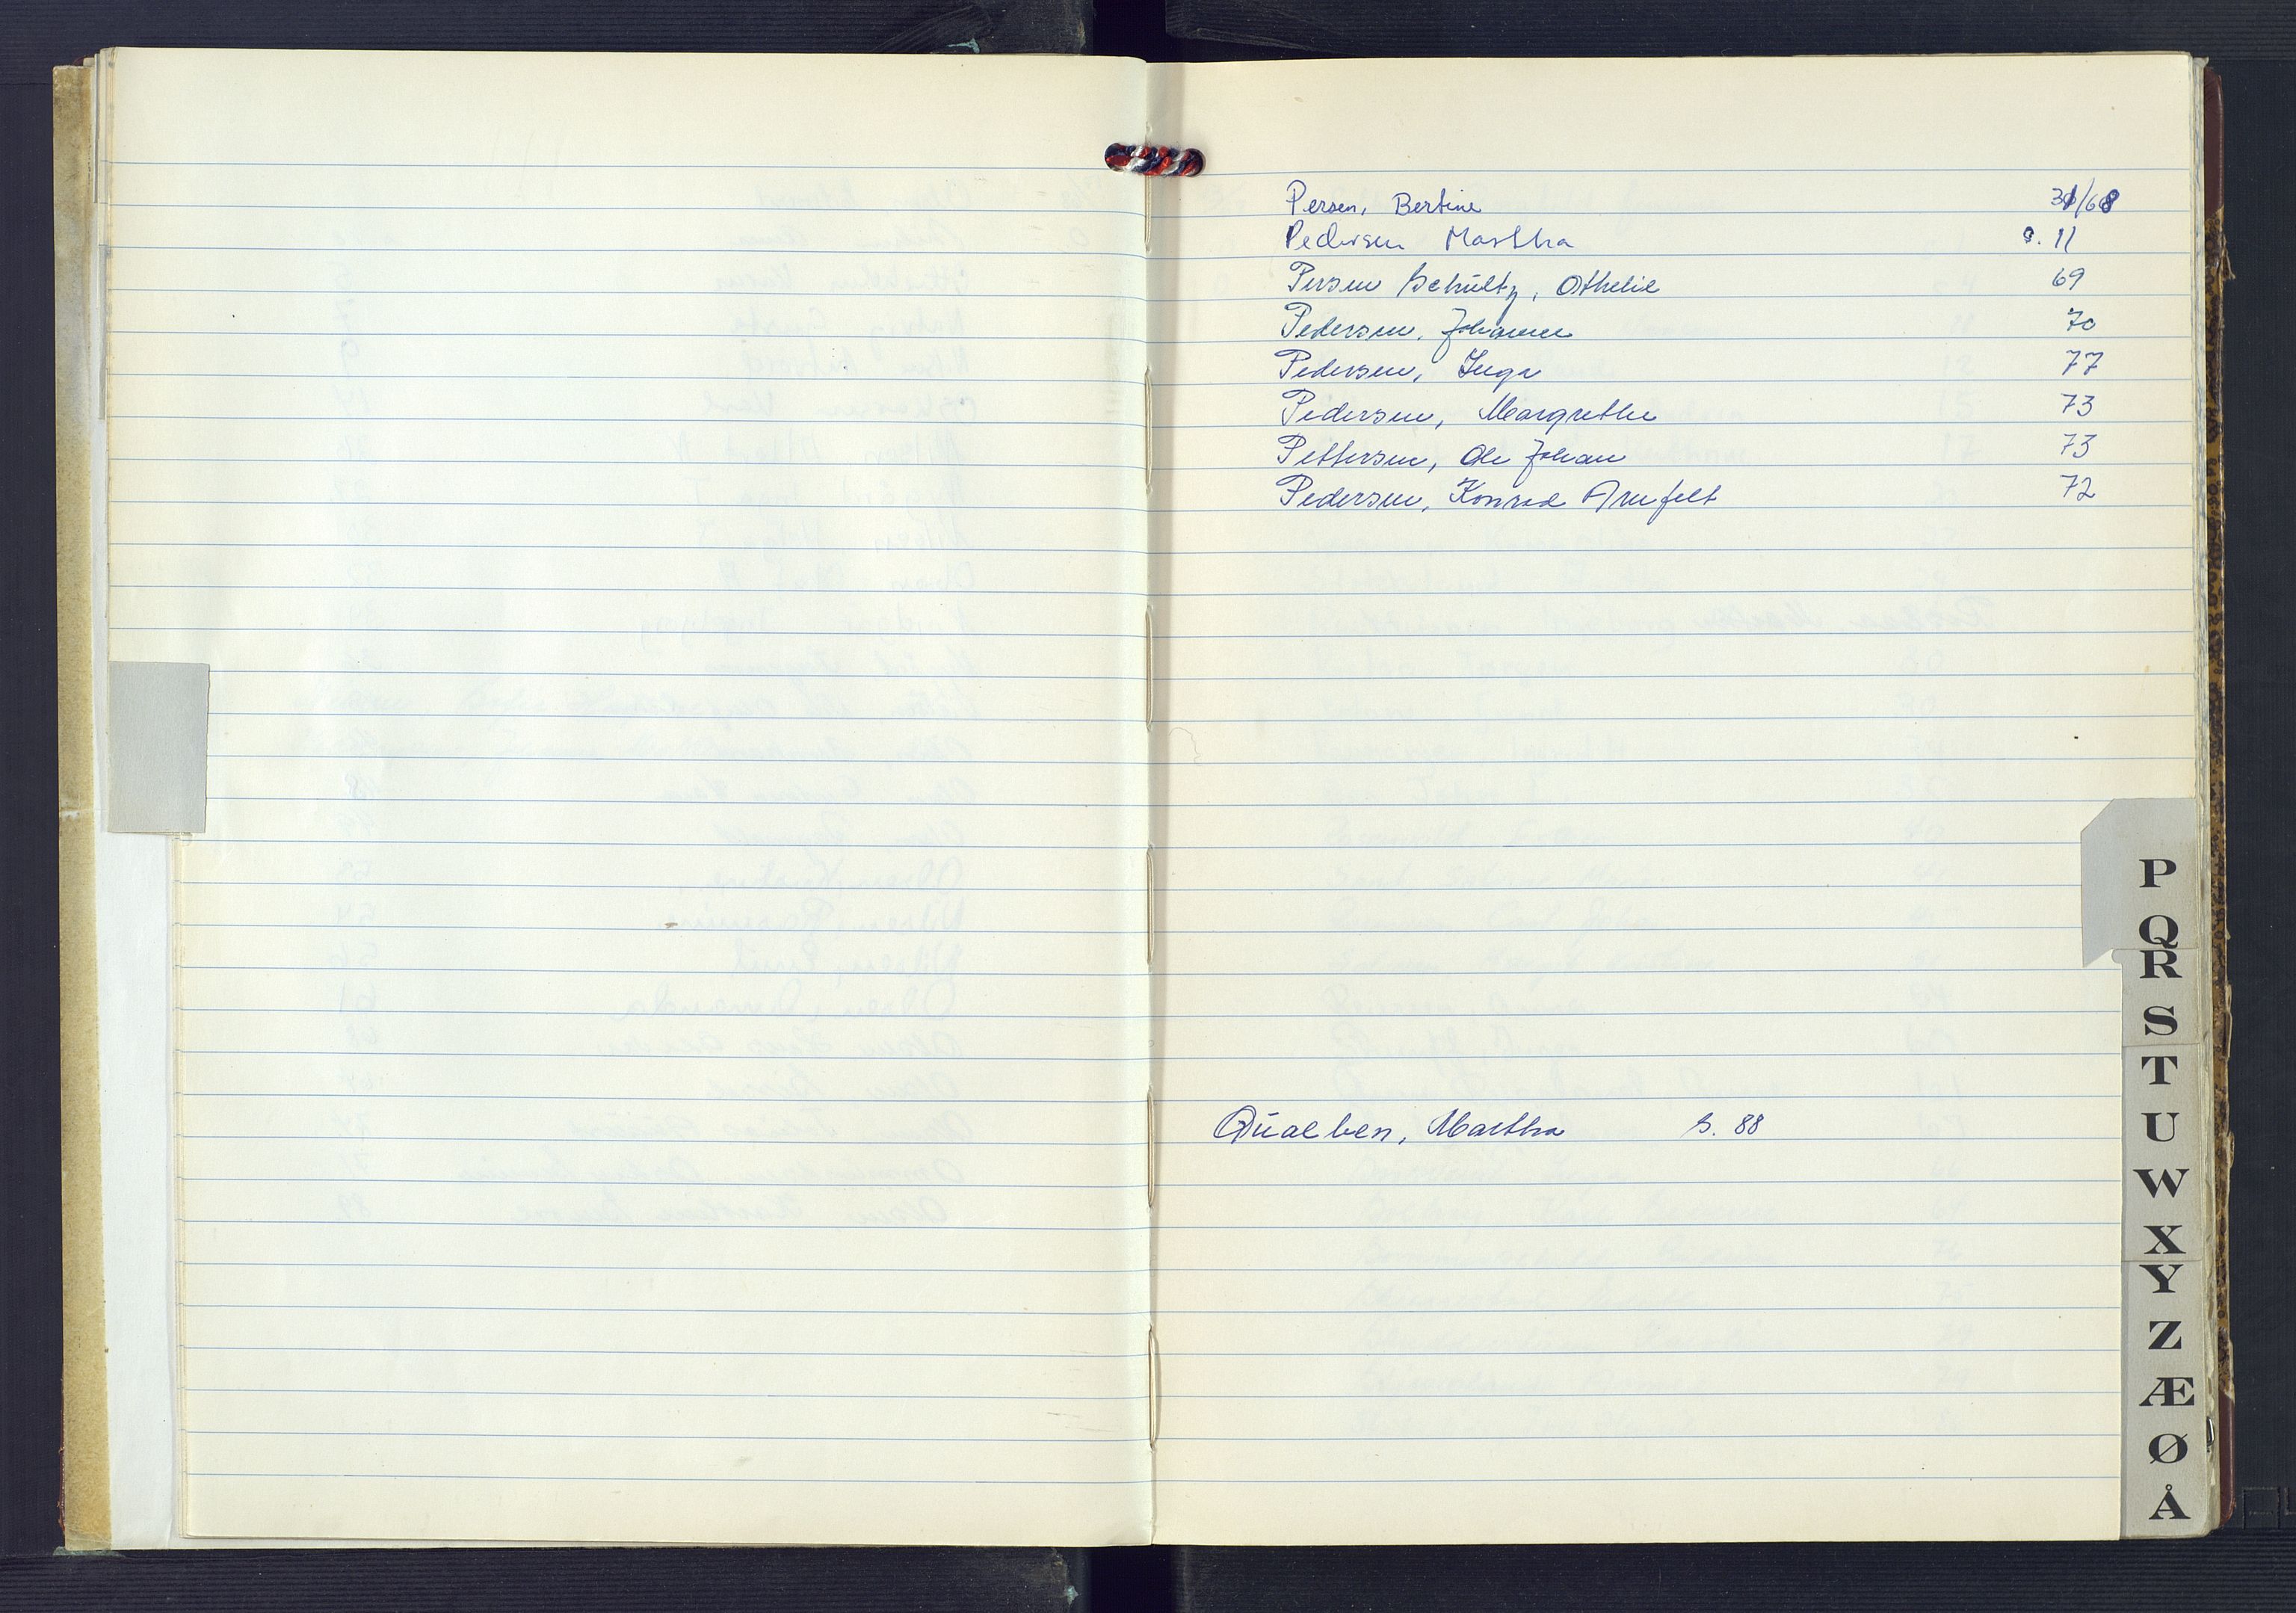 Persen, Bertine 31/68
Pedersen Martha s. 11
Persen Schultz, Othelie 69
Pedersen, Johanne 70
Pedersen, Inga 77
Pedersen, Margrethe 73
Pettersen, Ole Johan 73
Pedersen, Konrad Arnfelt 72
Quaeben, Martha S. 88
P
Q
R
S
T
U
W
X
Y
Z
Æ
Ø
Å